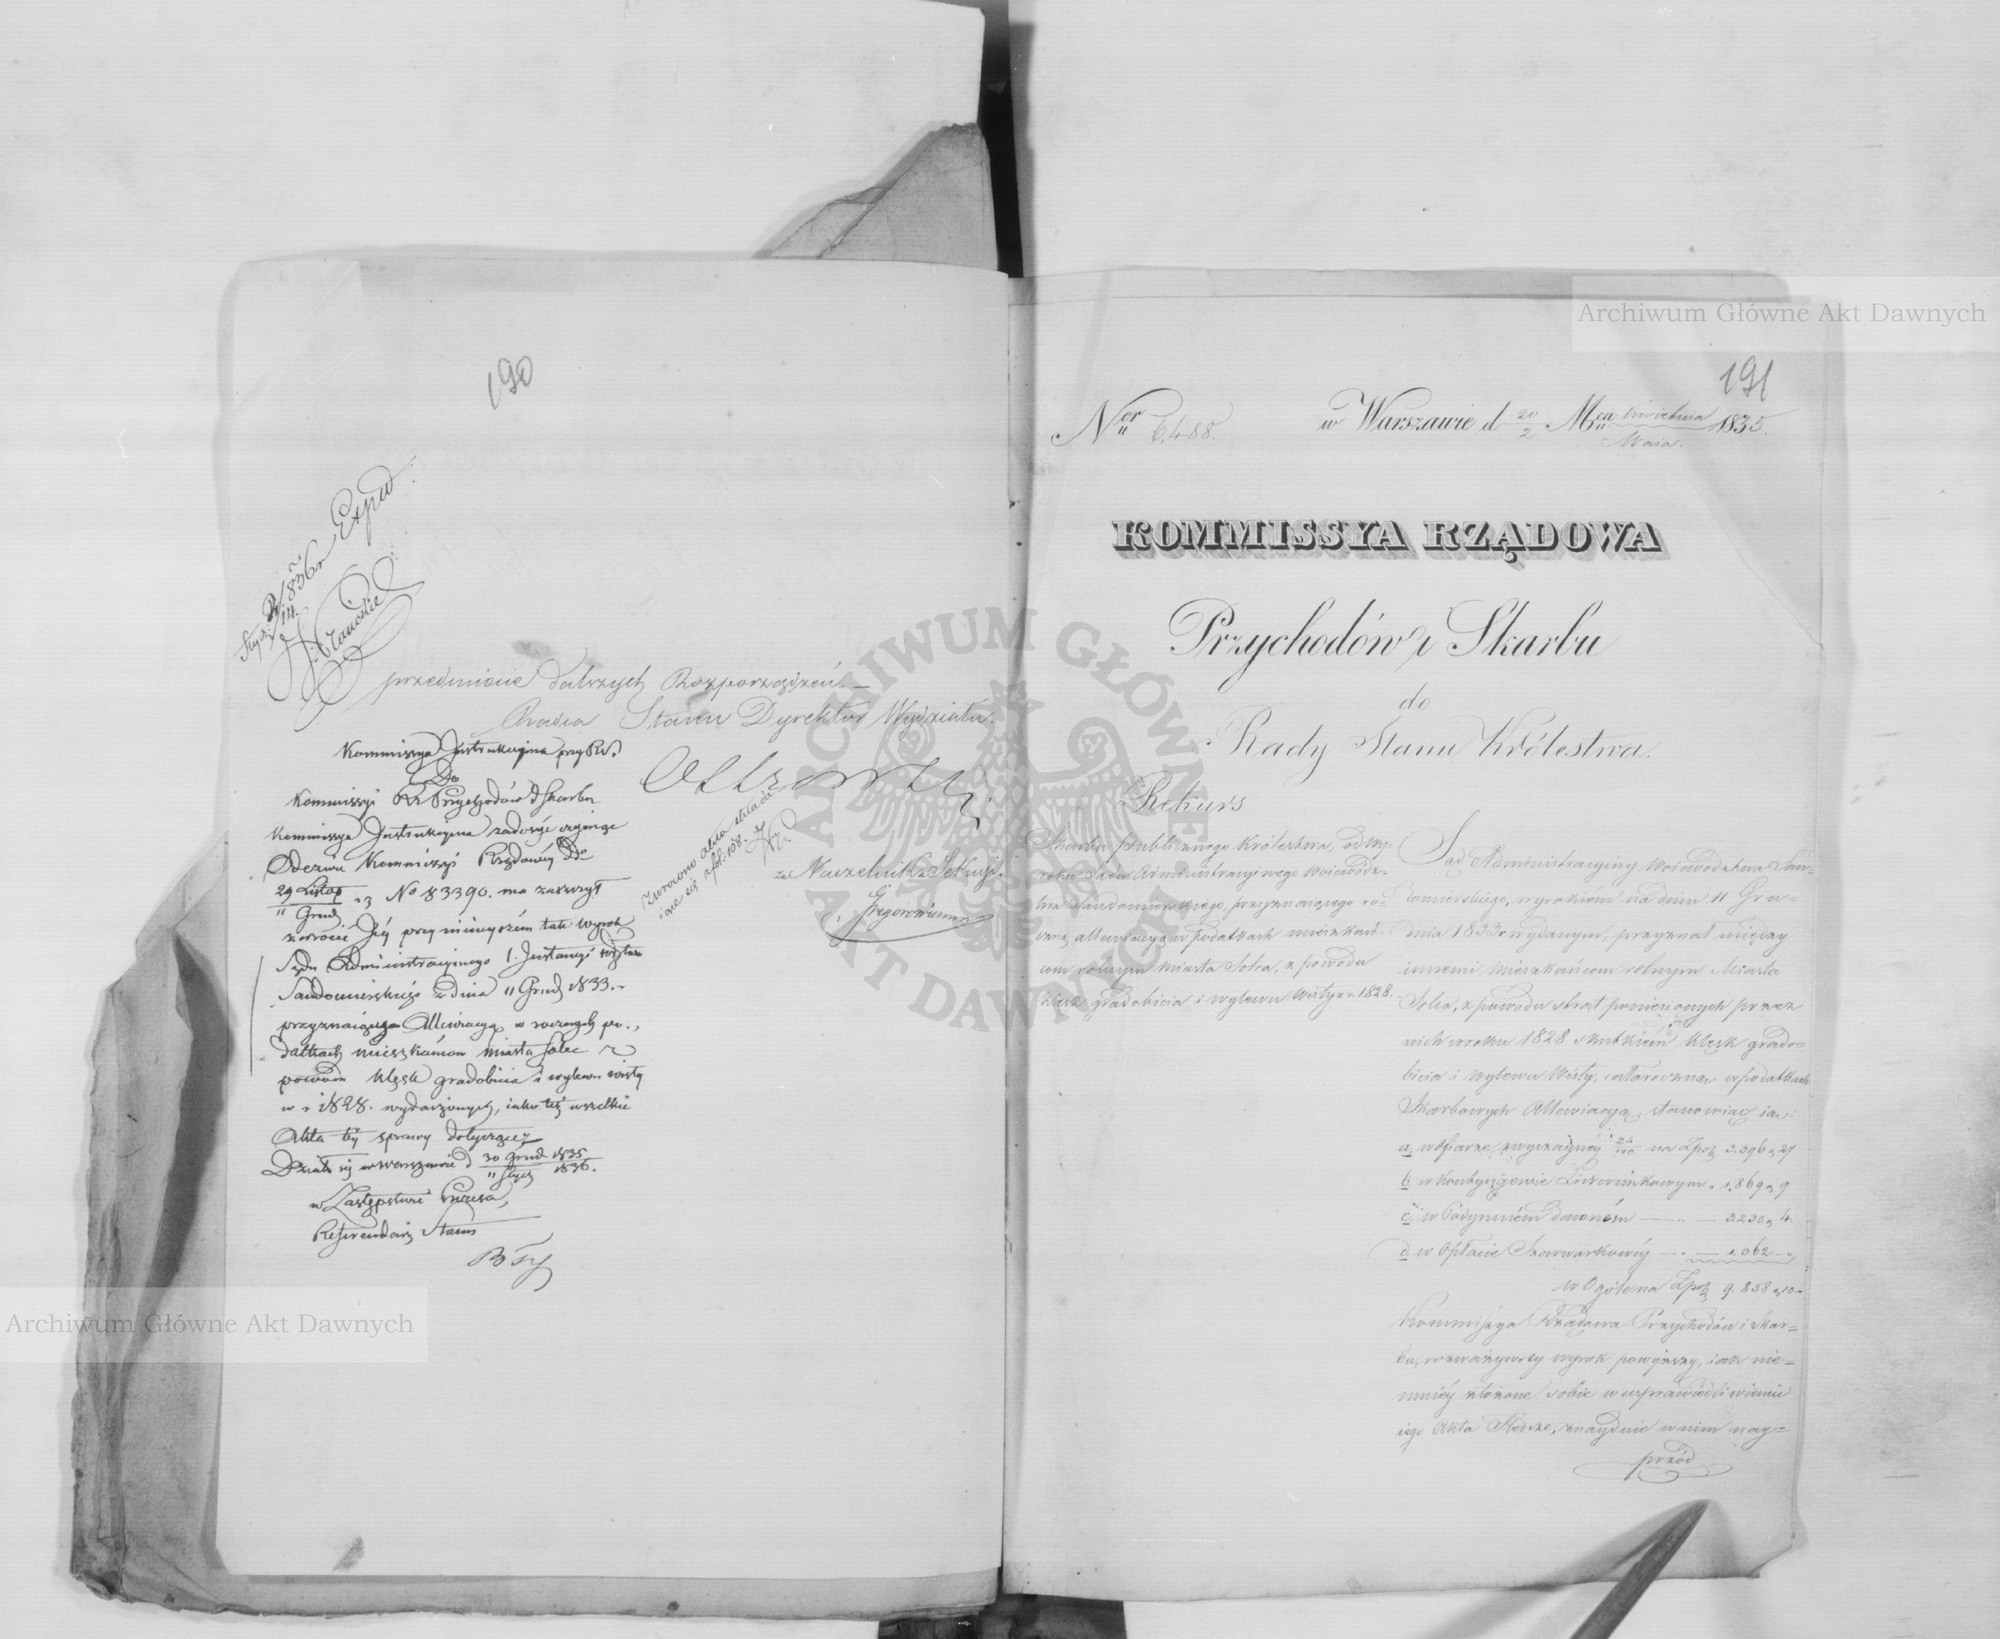 190
Expd
1836
przedmiocie dalszych Rozporządzeń. —
Radca Stanu Dyrektor Wydziału.
Kommissya Instrukcyina przy
Do
Kommissyi Rz. Przychodów i Skarbu
Kommissya Instrukcyina zadosyć czyniąc
Odezwie Kommissyi Rządowey
29 Listop
11 Grud No 83390. ma zaszczyt
zwrócić Jey przy ninieyszem tak wyrok
Sądu Administracyinego 1. Instancyi
Sandomierskiego z dnia 11 Grud 1833. -
przyznaiącego Allewiacyą w rocznych po-
datkach mieszkańcom miasta Solec z
powodu klęsk gradobicia i wylewu Wisły
w r 1828. wydarzonych, iako też wszelkie
Akta tey sprawy dotyczące
Działo się w Warszawie d 30 Grud 1835
11 Stycz 1836.
w Zastępstwie Prezesa,
Referendarz Stanu
zwrócono akta
za Naczelnika Sekcyi
191
Ner 6.488.
w Warszawie d 20/2 Mca Kwietnia/Maia. 1835.
KOMMISSYA RZĄDOWA
Przychodów i Skarbu
do
Rady Stanu Królestwa.
Rekurs
Skarbu Publicznego Królestwa, od wy-
roku Sądu Administracyinego Woiewódz-
twa Sandomierskiego, przyznaiącego ro-
czną allewiacyą w podatkach mieszkań-
com rolnym Miasta Solca, z powodu
klęsk gradobicia i wylewu Wisły w r 1828.
Sąd Administracyiny Woiewództwa San-
domierskiego, wyrokiem na dniu 11 Gru-
dnia 1833 r wydanym, przyznał między
innemi Mieszkańcom rolnym Miasta
Solca, z powodu strat poniesionych przez
nich w roku 1828 skutkiem klęsk grado-
bicia i wylewu Wisły, całoroczną w podatkach
Skarbowych Allewiacyą, stanowiąc ią:
a, w Ofiarze zwyczayney 24/100 na Zpol 3.396 " 27
b w Kontyngensie Liwerunkowym " 1,869 " 9
c, w Podymném dawném — " — 3.230 " 4.
d w Opłacie Szarwarkowey — " — 1.362 — "
w Ogólena Zpol 9.858 " 10 -
Kommissya Rządowa Przychodów i Skar-
bu, rozważywszy wyrok powyższy, iak nie-
mniey złożone sobie w usprawiedliwieniu
iego Akta Śledcze, znayduie w nim nay-
przód
Archiwum Główne Akt Dawnych
Archiwum Główne Akt Dawnych
ARCHIWUM GŁÓWNE AKT DAWNYCH